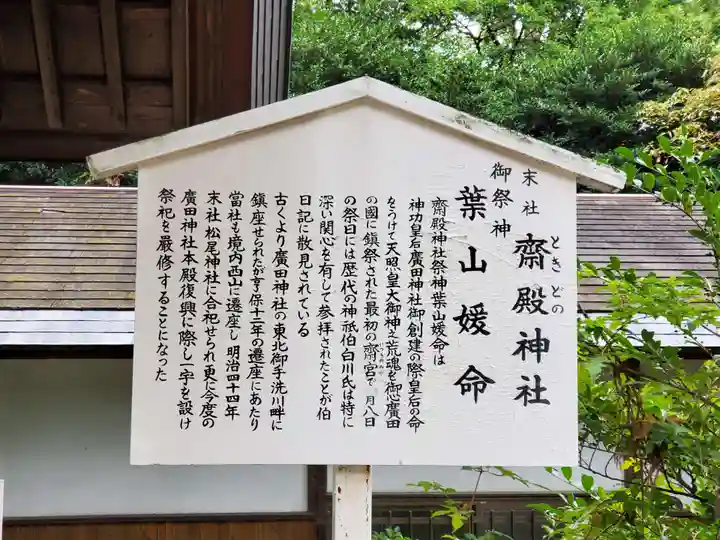 末社 齋殿神社
ときどの
御祭神
葉山媛命
齋殿神社祭神葉山媛命は
神功皇后廣田神社御創建の際皇后の命
をうけて天照皇大御神之荒魂を御心廣田
の國に鎮祭された最初の齋宮で 月八日
の祭日には歴代の神祇伯白川氏は特に
深い関心を有して参拝されたことが伯
日記に散見されている
古くより廣田神社の東北御手洗川畔に
鎮座せられたが享保十二年の遷座にあたり
當社も境内西山に遷座し明治四十四年
末社松尾神社に合祀せられ更に今度の
廣田神社本殿復興に際し一宇を設け
祭祀を嚴修することになった